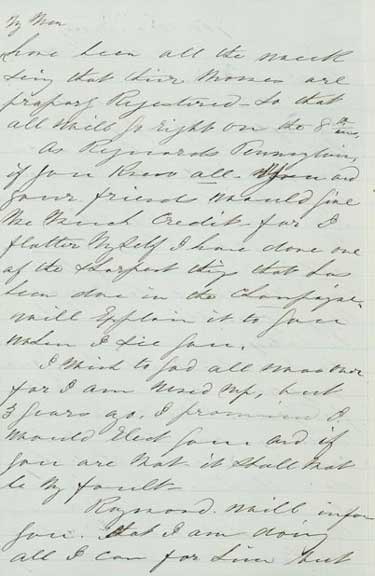 My Men
have been all the week
seing that their Names are
propary Regestered - So that
all will Go right on the 8th ins,
As Reguards Pennsylvina,
if you Knew all. You and
your friends would Give
Me Much Credit - for I
flatter Myself I have done one
of the Sharpest things that has
been done in the Campaigne,
will Explain it to you
when I see you.
I wish to God all was over
for I am used up, but
3 years ago. I promised I
would Elect you and if
you are Not it Shall Not
be My fault -
Raymond will infor
you. that I am doing
all I can for him but